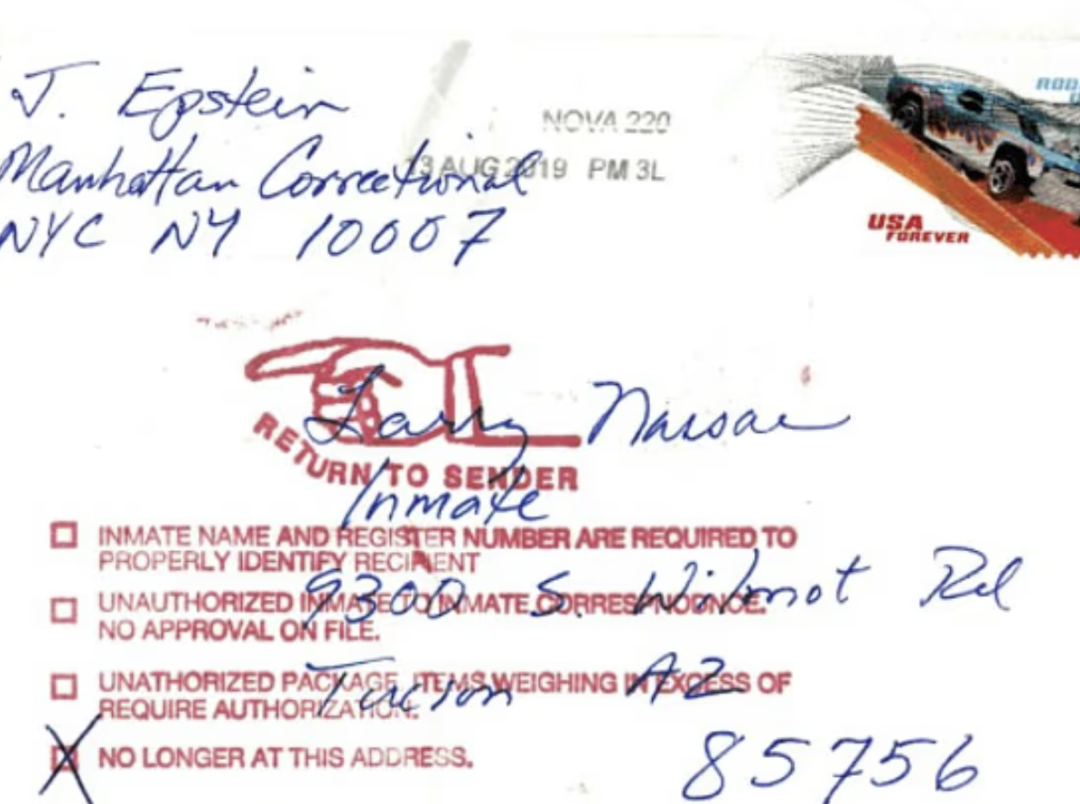 J. Epstein
Manhattan Correctional
NYC NY 10007
NOVA 220
13 AUG 2019 PM 3L
USA
FOREVER
Larry Nassar
RETURN TO SENDER
Inmate
INMATE NAME AND REGISTER NUMBER ARE REQUIRED TO
PROPERLY IDENTIFY RECIPIENT
9300 S. Wilmot Rd
UNAUTHORIZED INMATE TO INMATE CORRESPNODNCE.
NO APPROVAL ON FILE.
Tucson AZ
UNATHORIZED PACKAGE, ITEMS WEIGHING IN EXCESS OF
REQUIRE AUTHORIZATION.
X NO LONGER AT THIS ADDRESS.
85756